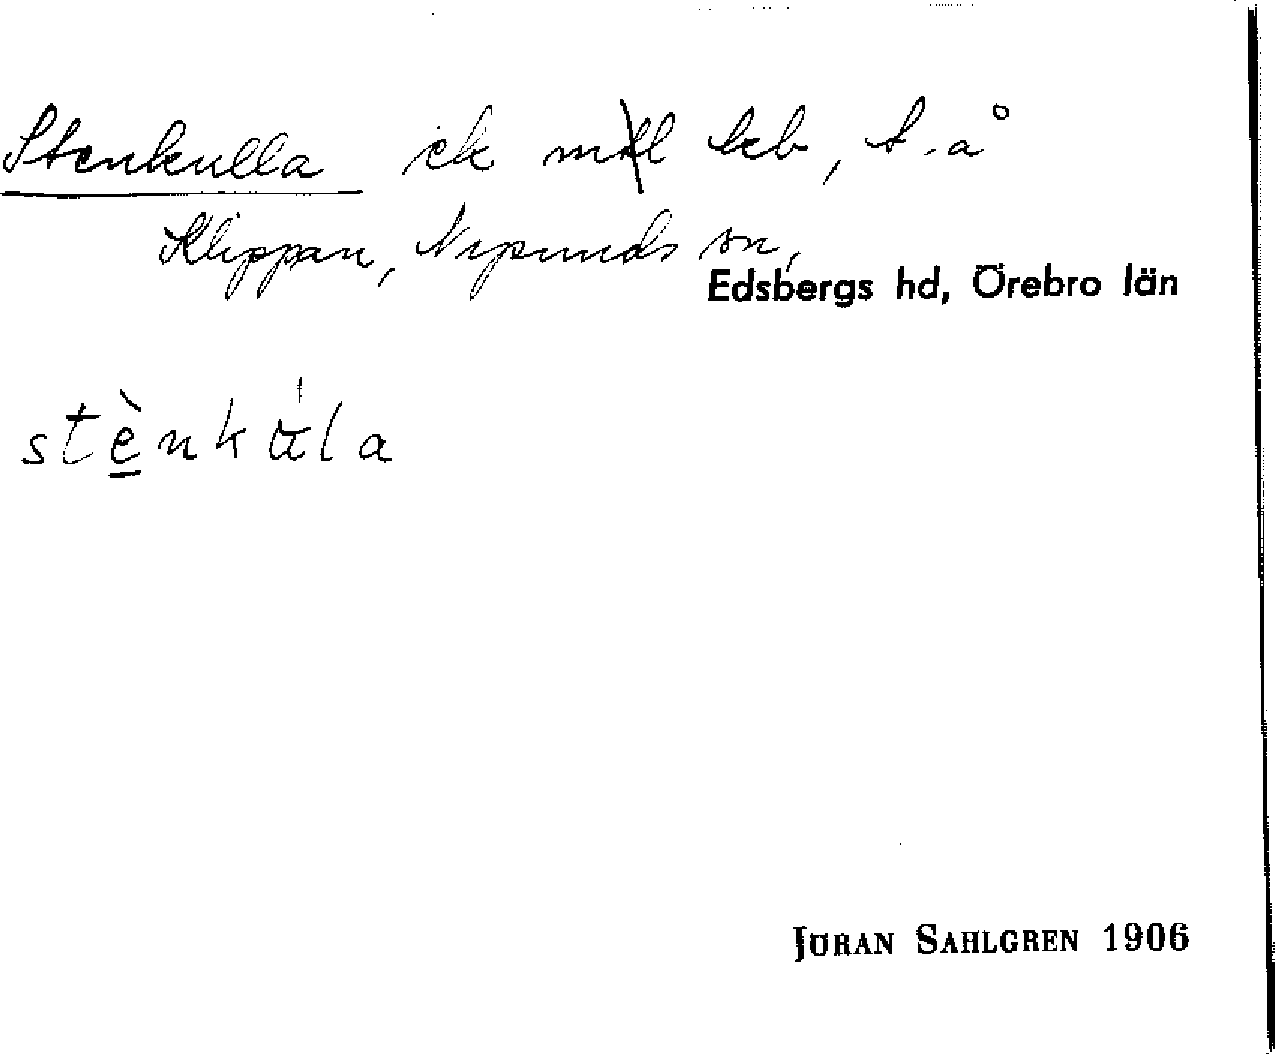 Stenkulla ek mtl beb, t.å
Klippan, Nysunds sn,
Edsbergs hd, Örebro län
stènku̍la
JÖRAN SAHLGREN 1906